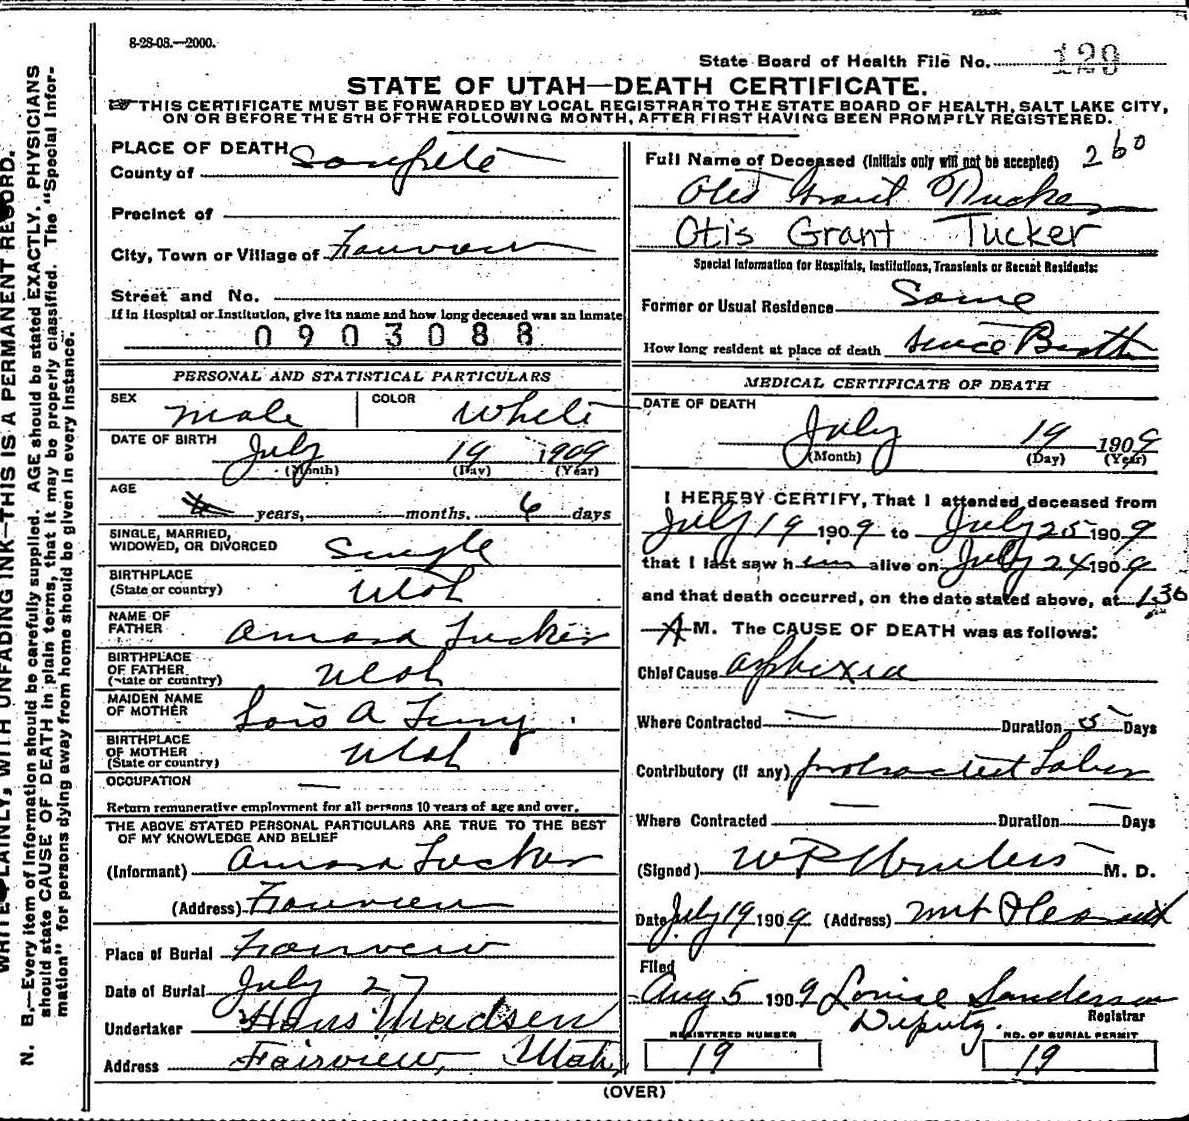 8-28-08.—2000.
State Board of Health File No. 129
STATE OF UTAH—DEATH CERTIFICATE.
THIS CERTIFICATE MUST BE FORWARDED BY LOCAL REGISTRAR TO THE STATE BOARD OF HEALTH, SALT LAKE CITY,
ON OR BEFORE THE 5TH OF THE FOLLOWING MONTH, AFTER FIRST HAVING BEEN PROMPTLY REGISTERED.
WRITE PLAINLY, WITH UNFADING INK—THIS IS A PERMANENT RECORD.
N. B.—Every item of information should be carefully supplied. AGE should be stated EXACTLY. PHYSICIANS
should state CAUSE OF DEATH in plain terms, that it may be properly classified. The "Special Infor-
mation" for persons dying away from home should be given in every instance.
PLACE OF DEATH
County of Sanpete
Precinct of
City, Town or Village of Fairview
Street and No.
If in Hospital or Institution, give its name and how long deceased was an inmate
0903088
PERSONAL AND STATISTICAL PARTICULARS
SEX male COLOR White
DATE OF BIRTH July 19 1909
(Month) (Day) (Year)
AGE
years, months, 6 days
SINGLE, MARRIED,
WIDOWED, OR DIVORCED Single
BIRTHPLACE
(State or country) Utah
NAME OF
FATHER Amasa Tucker
BIRTHPLACE
OF FATHER
(State or country) Utah
MAIDEN NAME
OF MOTHER Lois A Terry
BIRTHPLACE
OF MOTHER
(State or country) Utah
OCCUPATION —
Return remunerative employment for all persons 10 years of age and over.
THE ABOVE STATED PERSONAL PARTICULARS ARE TRUE TO THE BEST
OF MY KNOWLEDGE AND BELIEF
(Informant) Amasa Tucker
(Address) Fairview
Place of Burial Fairview
Date of Burial July 27
Undertaker Hans Madsen
Address Fairview, Utah,
Full Name of Deceased (Initials only will not be accepted) 260
Otis Grant Tucker
Otis Grant Tucker
Special Information for Hospitals, Institutions, Transients or Recent Residents:
Former or Usual Residence Same
How long resident at place of death Since Birth
MEDICAL CERTIFICATE OF DEATH
DATE OF DEATH
July 19 1909
(Month) (Day) (Year)
I HEREBY CERTIFY, That I attended deceased from
July 19 1909 to July 25 1909
that I last saw him alive on July 24 1909
and that death occurred, on the date stated above, at 1.30
A M. The CAUSE OF DEATH was as follows:
Chief Cause asphixia
Where Contracted — Duration 5 Days
Contributory (if any) protracted Labor
Where Contracted — Duration — Days
(Signed) M. D.
Date July 19 1909 (Address) Mt Pleasant
Filed
Aug 5 1909 Louise Sanderson
Deputy. Registrar
REGISTERED NUMBER NO. OF BURIAL PERMIT
19 19
(OVER)